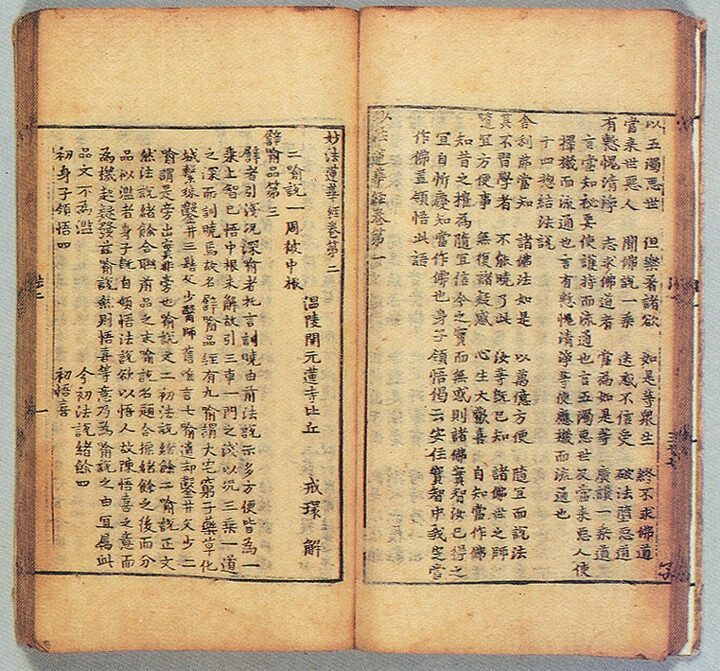 以五濁惡世 但樂著諸欲 如是等衆生 終不求佛道
當來世惡人 聞佛說一乘 迷惑不信受 破法墮惡道
有慙愧清淨 志求佛道者 當爲如是等 廣讚一乘道
言當知秘要使護持而流通也言五濁惡世及當來惡人使
擇機而流通也言有慙愧清淨等使應機而流通也
十四揔結法說
舍利弗當知 諸佛法如是 以萬億方便 隨宜而說法
其不習學者 不能曉了此 汝等旣已知 諸佛世之師
隨宜方便事 無復諸疑惑 心生大歡喜 自知當作佛
知昔之權爲隨宜信今之實而無惑則諸佛實智汝已得之
宜自忻慶知當作佛也身子領悟偈云安住實智中我定當
作佛蓋領悟此語
妙法蓮華經卷第一
妙法蓮華經卷第二
溫陵開元蓮寺比丘 戒環 解
二喻說一周被中根
譬喻品第三
譬者引淺況深喻者托言訓曉由前法說示多方便皆爲一
乘上智已悟中根未解故引三車一門之淺以況三乘一道
之深而訓曉焉故名譬喻品經有九喻謂大宅窮子藥草化
城繫珠鑿井王髻父少醫師舊唯言七喻遺却鑿井父少二
喻謂是旁出實非旁也喻說文二初法說緖餘二喻說正文
然法說緖餘合聯前品之末喻說名題合㨾緖餘之後而分
品似濫者身子旣自領悟法說欲以悟人故陳悟喜之意而
爲模起疑發茲喻說然則悟喜等意乃爲喻說之由宜屬此
品文不爲濫 今初法說緖餘四
初身子領悟四 初悟喜
法二 一